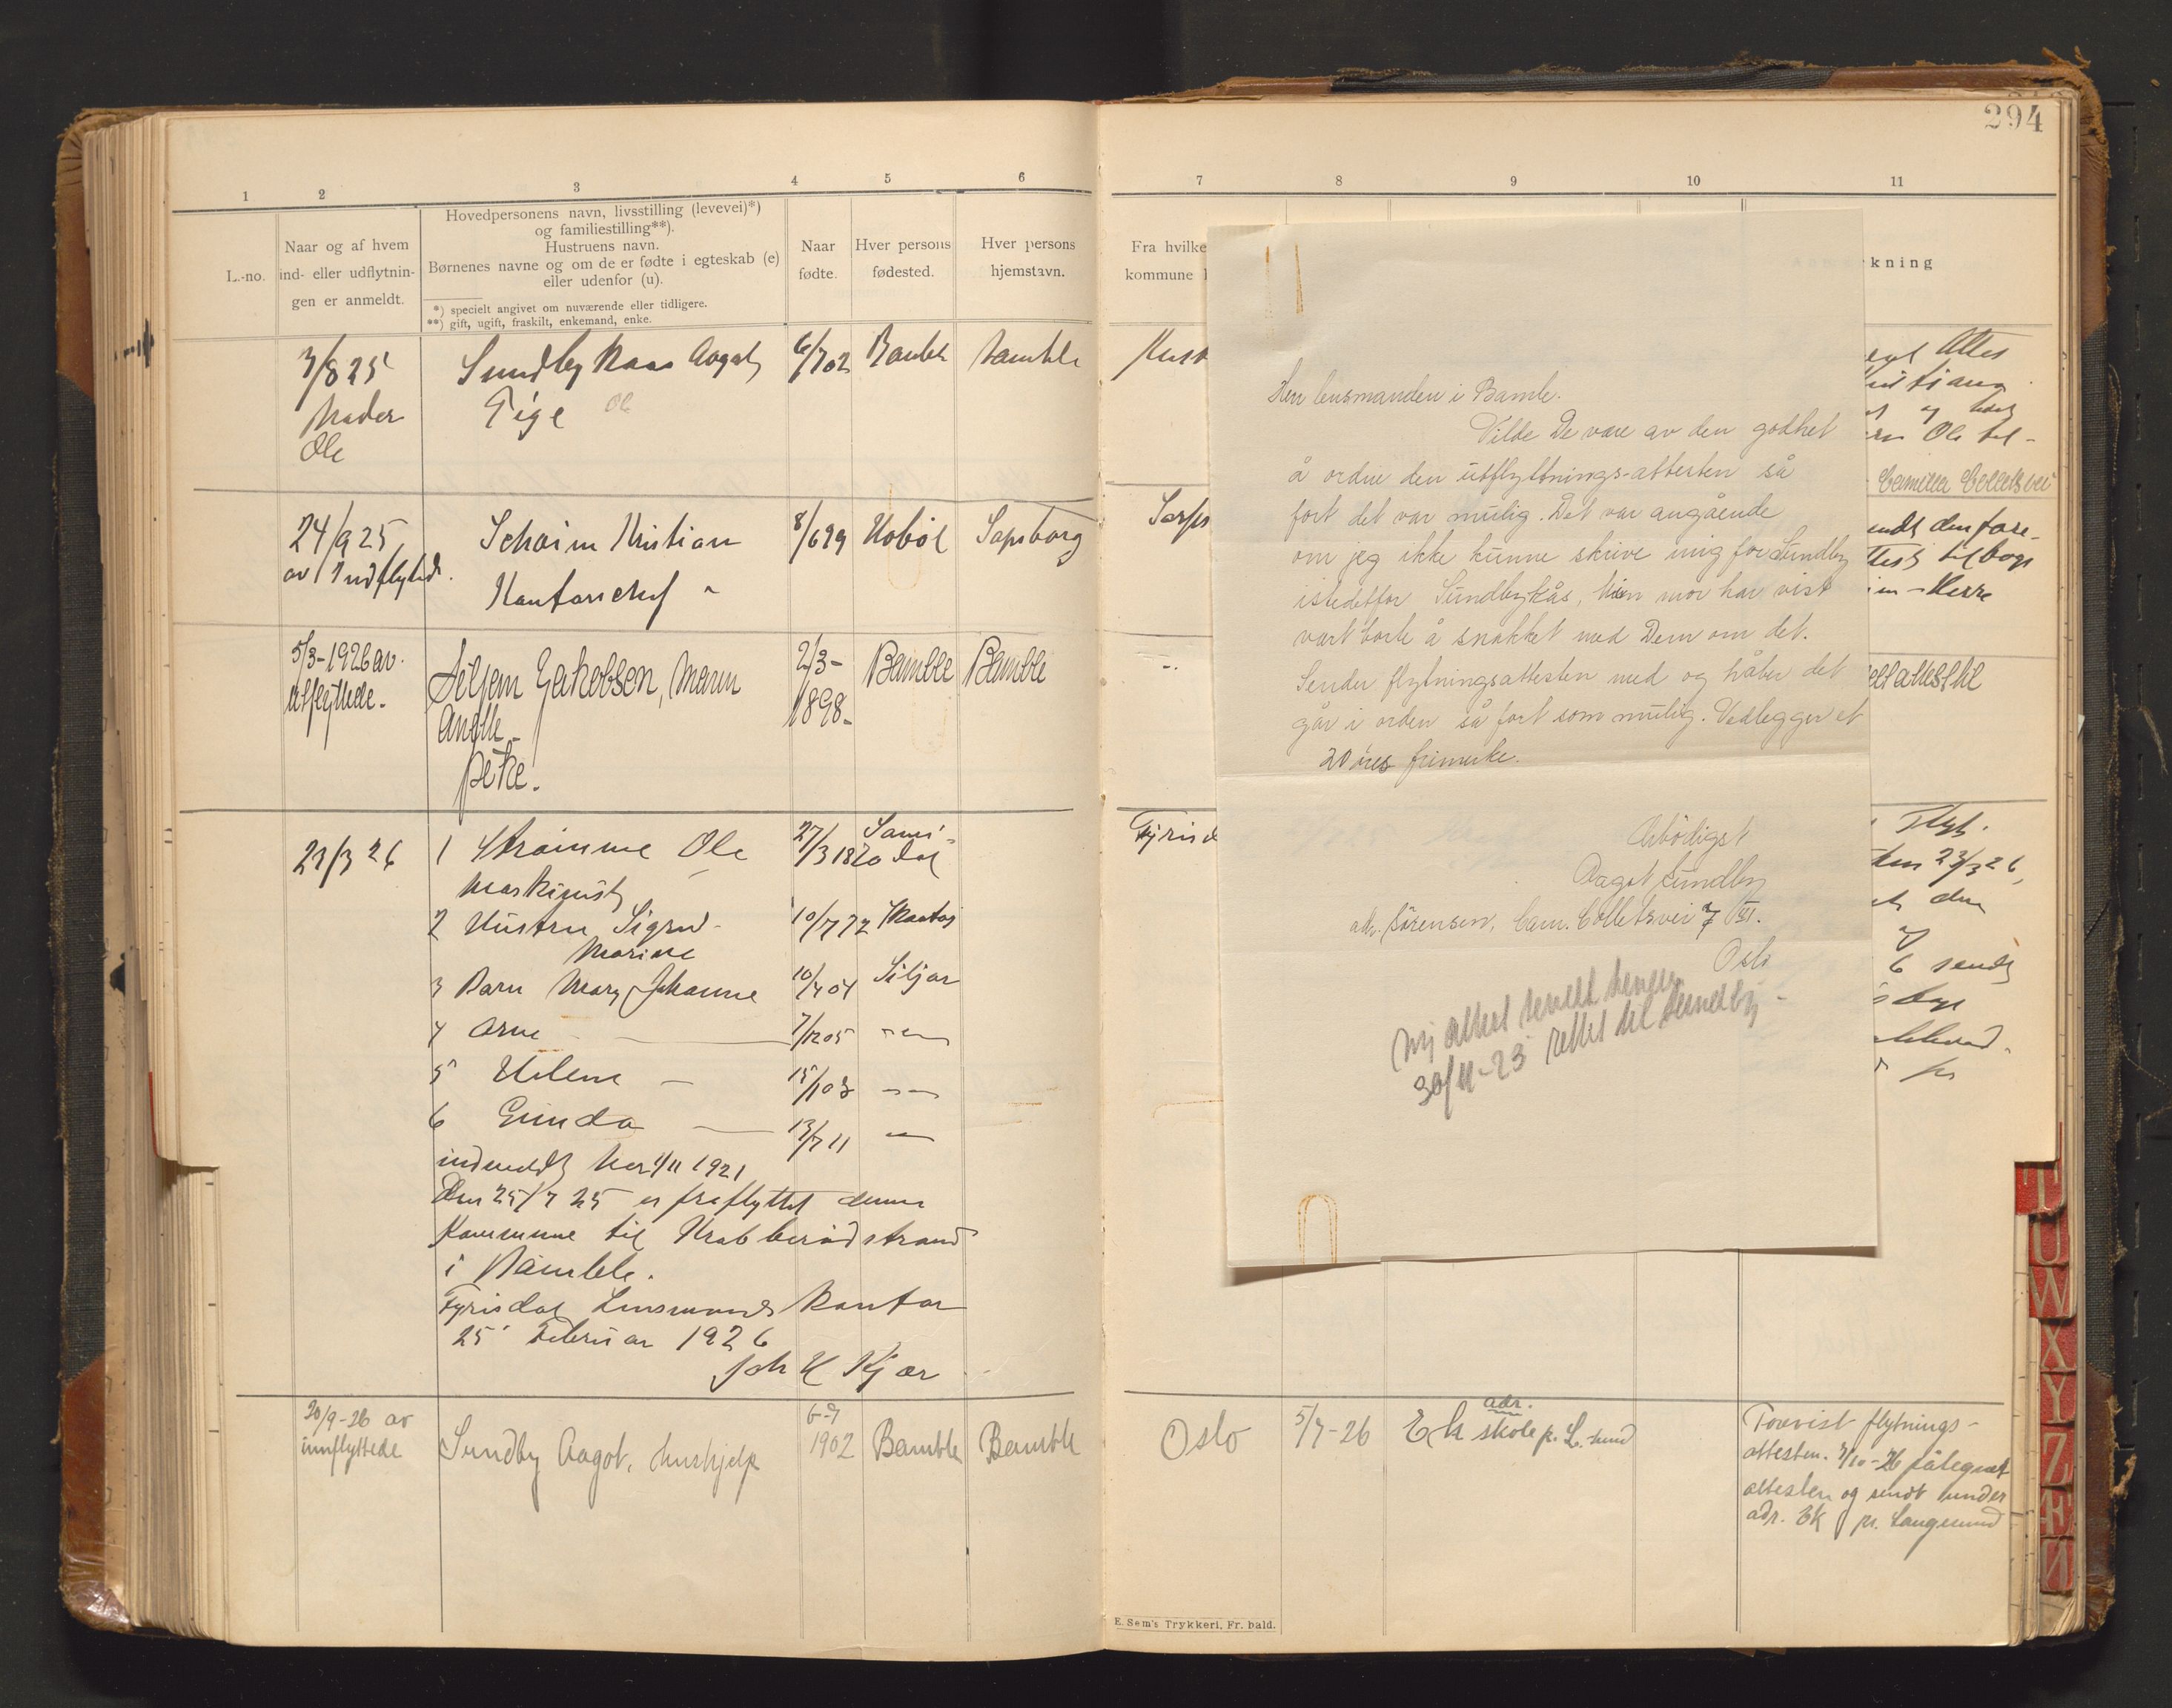 294
1
2
3
4
5
6
7
8
9
10
11
L.-no.
Naar og af hvem
ind- eller udflytnin-
gen er anmeldt.
Hovedpersonens navn, livsstilling (levevei)*)
og familiestilling**).
Hustruens navn.
Børnenes navne og om de er fødte i egteskab (e)
eller udenfor (u).
*) specielt angivet om nuværende eller tidligere.
**) gift, ugift, fraskilt, enkemand, enke.
Naar
fødte.
Hver persons
fødested.
Hver persons
hjemstavn.
Fra hvilke
kommune
kning
3/8 25
Sundby kaas Aagot
6/7 02
Bamble
Bamble
Moder
Pige
Ole
24/9 25
av Indflytted.
Kristian
Kontorchef
8/6 29
Hobøl
Sarpsborg
Sarps
5/3-1926 av
utflyttede.
Siljan Jakobsen, Maren
Anette
pike.
2/3-
1898-
Bamble
Bamble
23/3 26
1 Straimme Ole
Maskinist
27/3 1870
Sani-
dal
Fyrisd
2 Hustru Sigrid
Marine
10/7 72
3 Barn Mary Johanne
10/4 04
Siljan
4 Arne
7/12 05
5 Helene
15/1 03
6 Gunda
13/7 11
indmeldt her 4/11 1921
Den 25/7 25 er fraflyttet denne
Kommune til Krabberødstrand
i Bamble.
Fyrisdal Lensmandskontor
25 Februar 1926
Joh H Kjær
20/9-26 av
innflyttede
Sundby Aagot, hushjelp
6-7
1902
Bamble
Bamble
Oslo
5/7-26
adr.
Ek skole p. L.-sund
Forevist flytnings-
attesten. 7/10-26 påtegnet
attesten og sendt under
adr. Ek pr. Langesund
Herr lensmanden i Bamle.
Vilde De være av den godhet
å ordne den utflytnings-attesten så
fort det var mulig. Det var angående
om jeg ikke kunne skrive mig for Sundby
istedetfor Sundbykås, Min mor har vist
vært borte å snakket med Dem om det.
Sender flytningsattesten med og håber det
går i orden så fort som mulig. Vedlegger et
20 øres frimerke.
Ærbødigst
Aagot Sundby
adr. Sørensen, Cam. Colletsvei 7 III.
Oslo
Ny attest sendt
30/11-23 rettet til Sundby
Attes
Ole til-
Camilla Collets vei
endt den fore-
-Herre
attest til
Flyt.
den 23/3 26,
den
6 sendt
E. Sem's Trykkeri, Fr. bald.
T
U
W
X
Y
Z
Æ